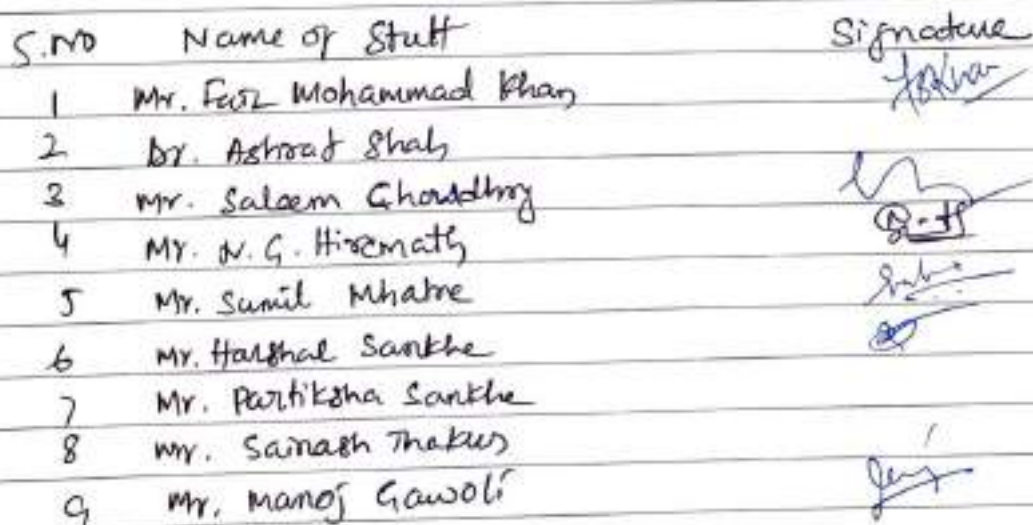 S.NO Name of Stuff Signature
1 Mr. Faiz Mohammad Khan
2 Dr. Ashraf Shah
3 Mr. Saleem Chowdhry
4 Mr. N. G. Hiremath
5 Mr. Sunil Mhatre
6 Mr. Harshal Sankhe
7 Mr. Partiksha Sankhe
8 Mr. Sainash Thakur
9 Mr. Manoj Gawoli